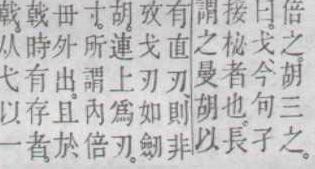 倍之。胡三之。
曰。戈。今句孑
接柲者也。長
謂之曼胡以
有直刃。則非
攷戈刃如劒
胡。連上爲刃。
寸。所謂內倍
毌外出。且於
戟時有存者。
戟。从戈以一